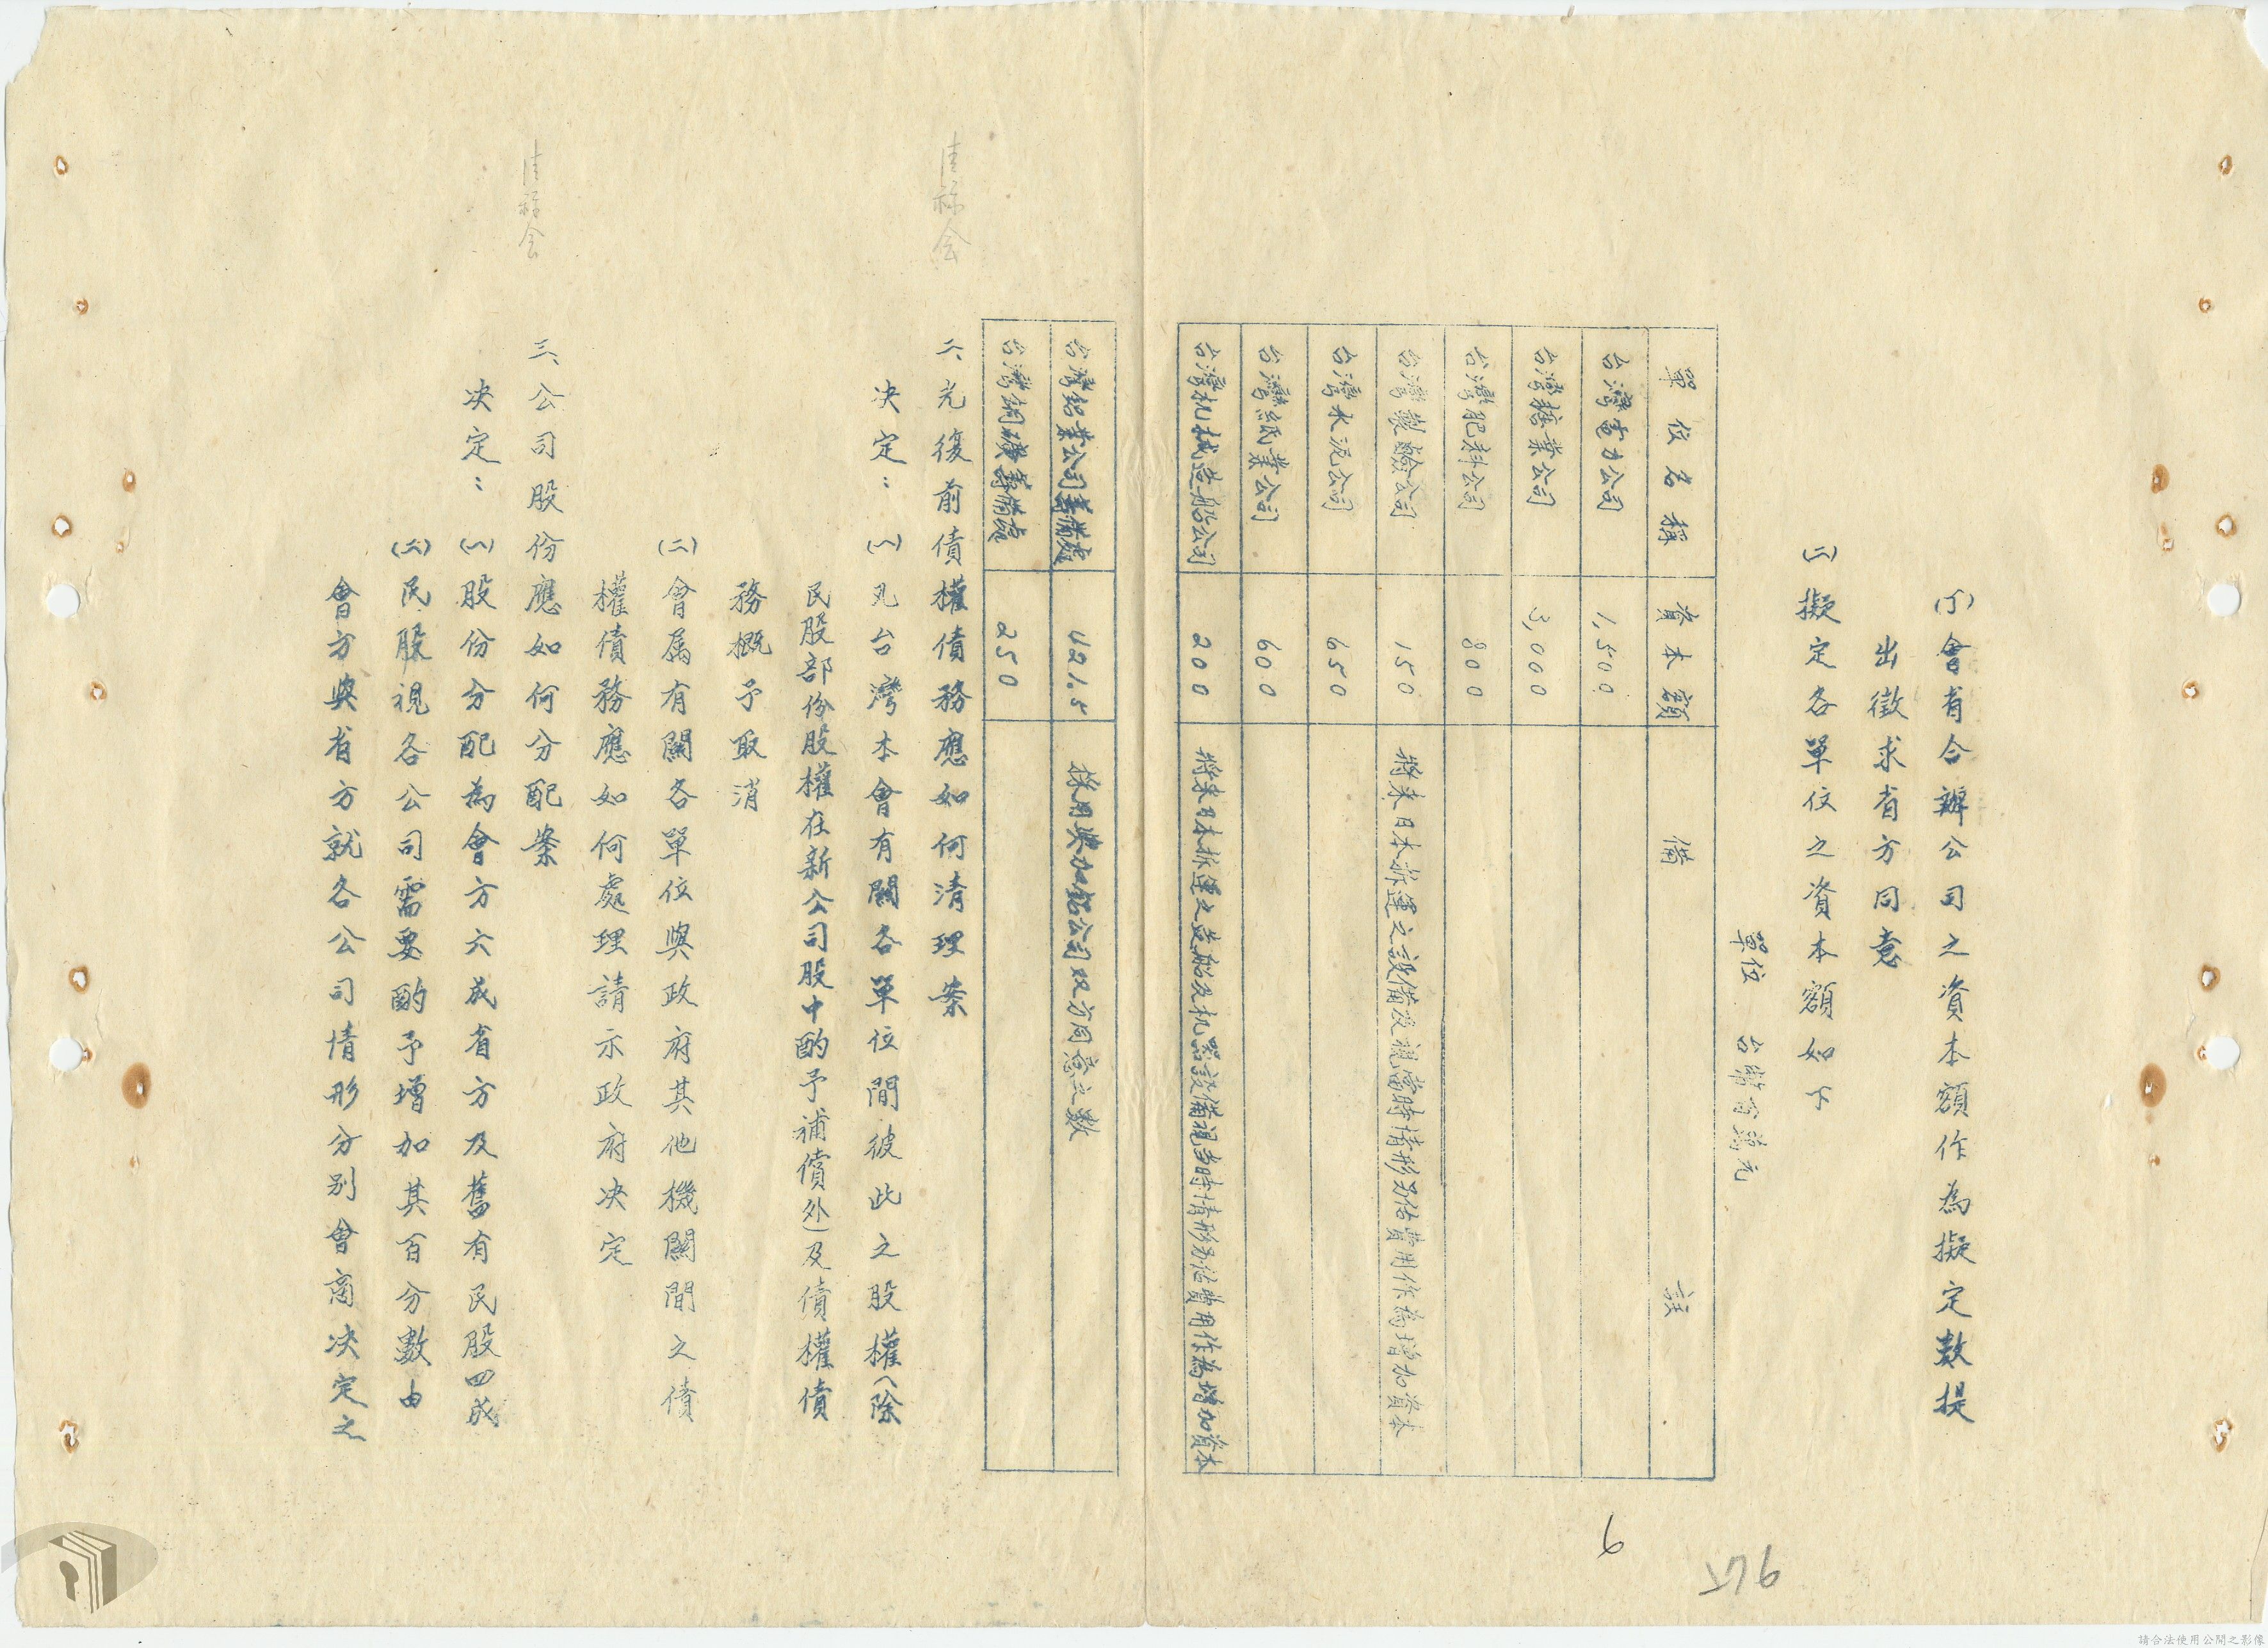 (丁)會省合辦公司之資本額作為擬定數提
出徵求省方同意
(二)擬定各單位之資本額如下
單位 台幣百萬元
單位名稱 資本額 備註
台灣電力公司 1,500
台灣糖業公司 3,000
台灣肥料公司 800
台灣製鹼公司 150 將來日本拆運之設備及視當時情形另估費用作為增加資本
台灣水泥公司 650
台灣紙業公司 600
台灣机械造船公司 200 將來日本拆運之造船及机器設備視当時情形另估費用作為增加資本
台灣鋁業公司籌備處 421.5 採用與加鋁公司双方同意之數
台灣銅礦籌備處 250
二、光復前債權債務應如何清理案
决定：(一)凡台灣本會有關各單位間彼此之股權(除
民股部份股權在新公司股中酌予補償外)及債權債
務概予取消
(二)會属有關各單位與政府其他機關間之債
權債務應如何處理請示政府决定
三、公司股份應如何分配案
决定：(一)股份分配為會方六成省方及舊有民股四成
(二)民股視各公司需要酌予增加其百分數由
會方與省方就各公司情形分別會商决定之
6
請合法使用公開之影像